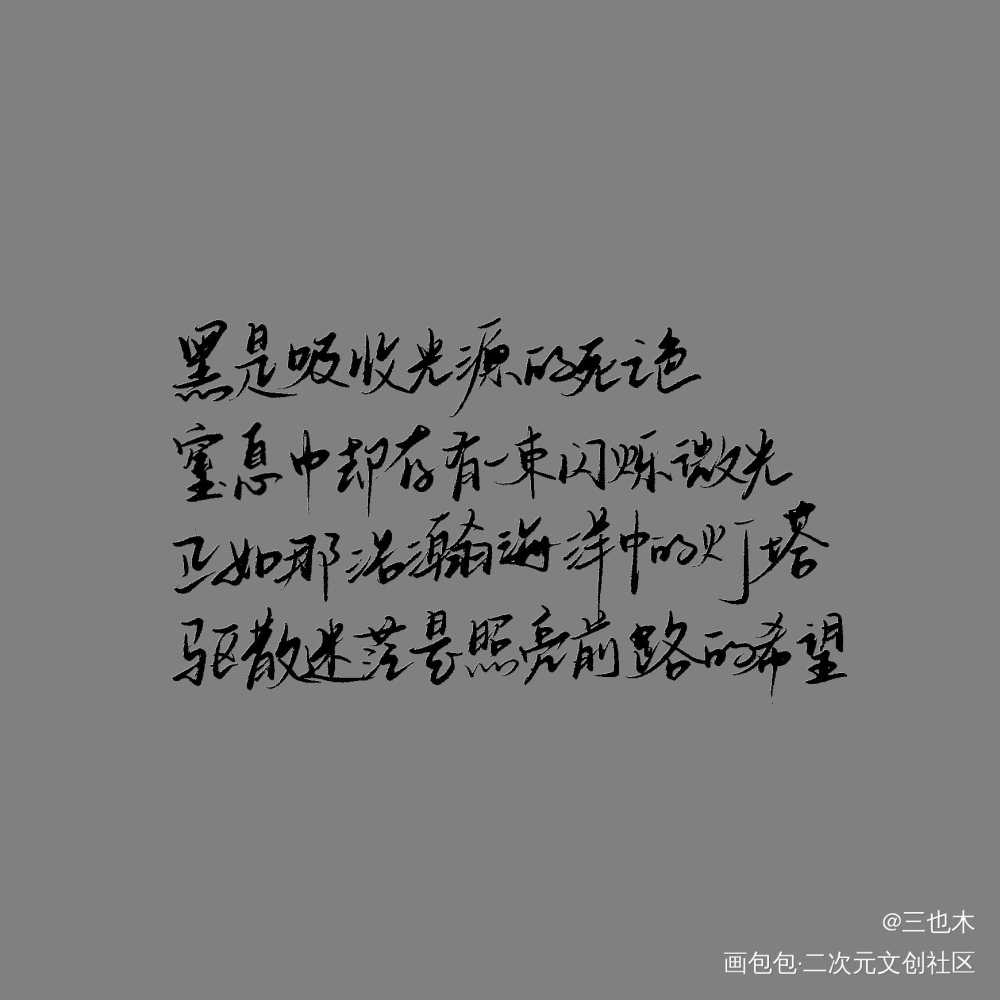 黑是吸收光源的死之色
窒息中却存有一束闪烁微光
正如那浩瀚海洋中的灯塔
驱散迷茫是照亮前路的希望
@三也木
画包包·二次元文创社区